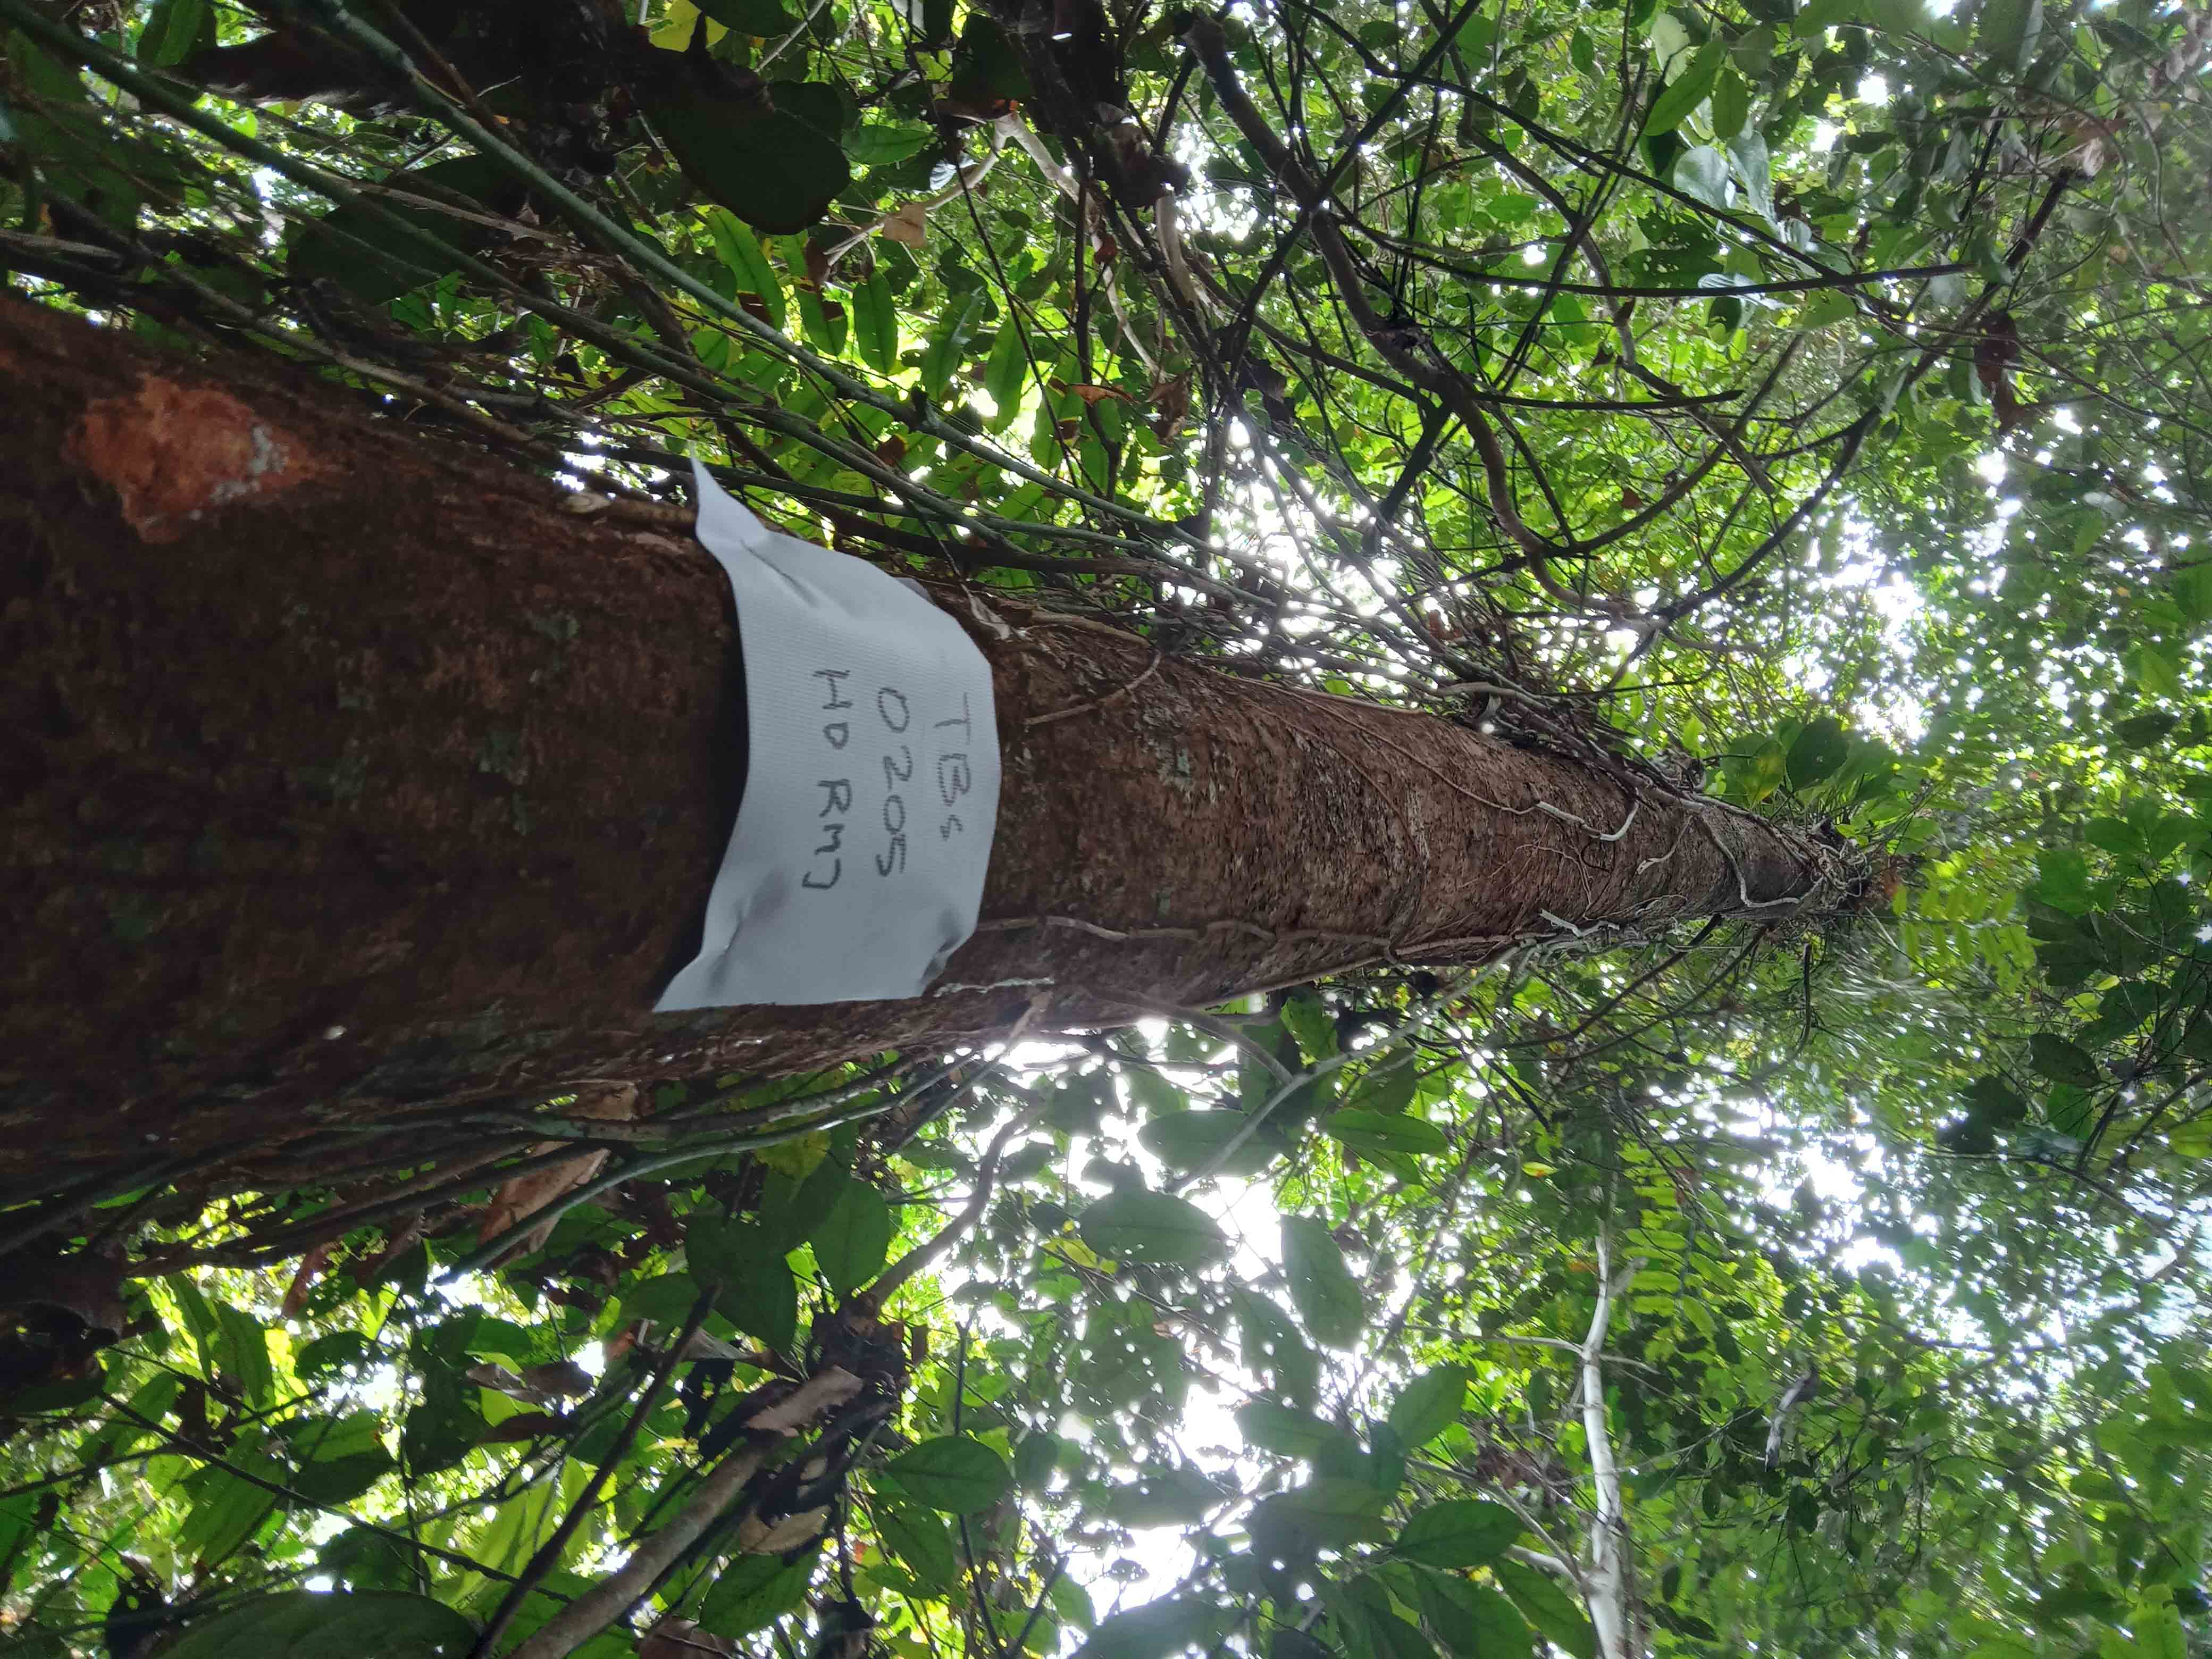 TBS
0205
HD RMJ